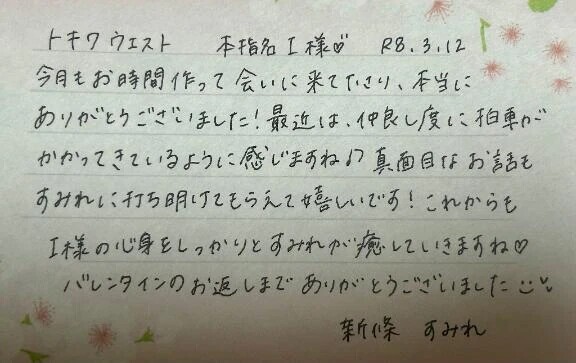 トキワ ウエスト 本指名 I様♡ R8.3.12
今月もお時間作って会いに来て下さり、本当に
ありがとうございました!最近は、仲良し度に拍車が
かかってきているように感じますね♪?真面目なお話も
すみれに打ち明けてもらえて嬉しいです!これからも
I様の心身をしっかりとすみれが癒していきますね♡
バレンタインのお返しまでありがとうございました
新條 すみれ